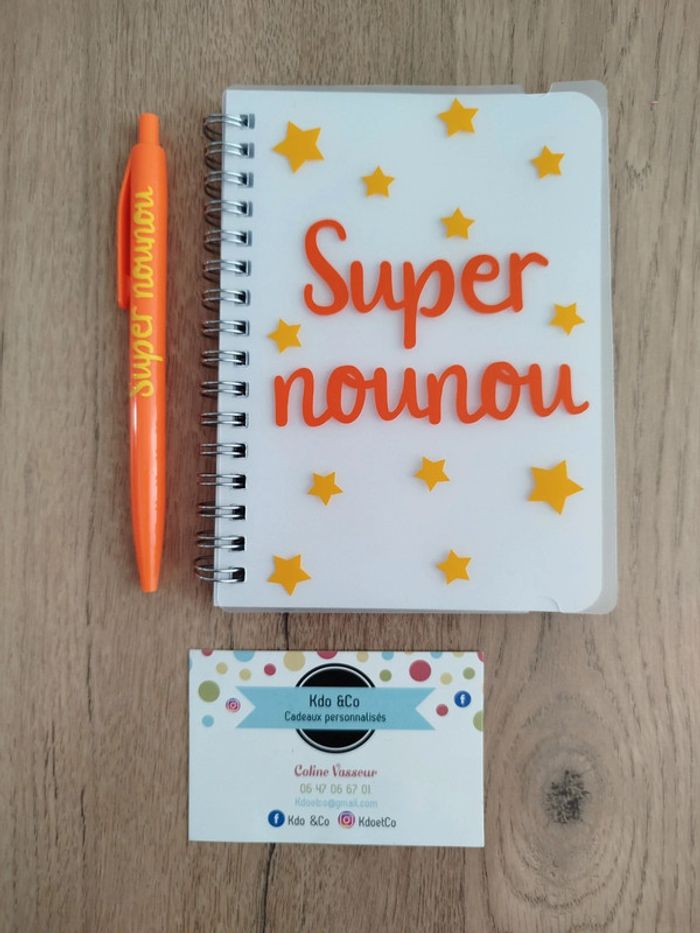 Super nounou
Super
nounou
Kdo &Co
Cadeaux personnalisés
Coline Vasseur
06 47 06 67 01
Kdoetco@gmail.com
Kdo &Co KdoetCo